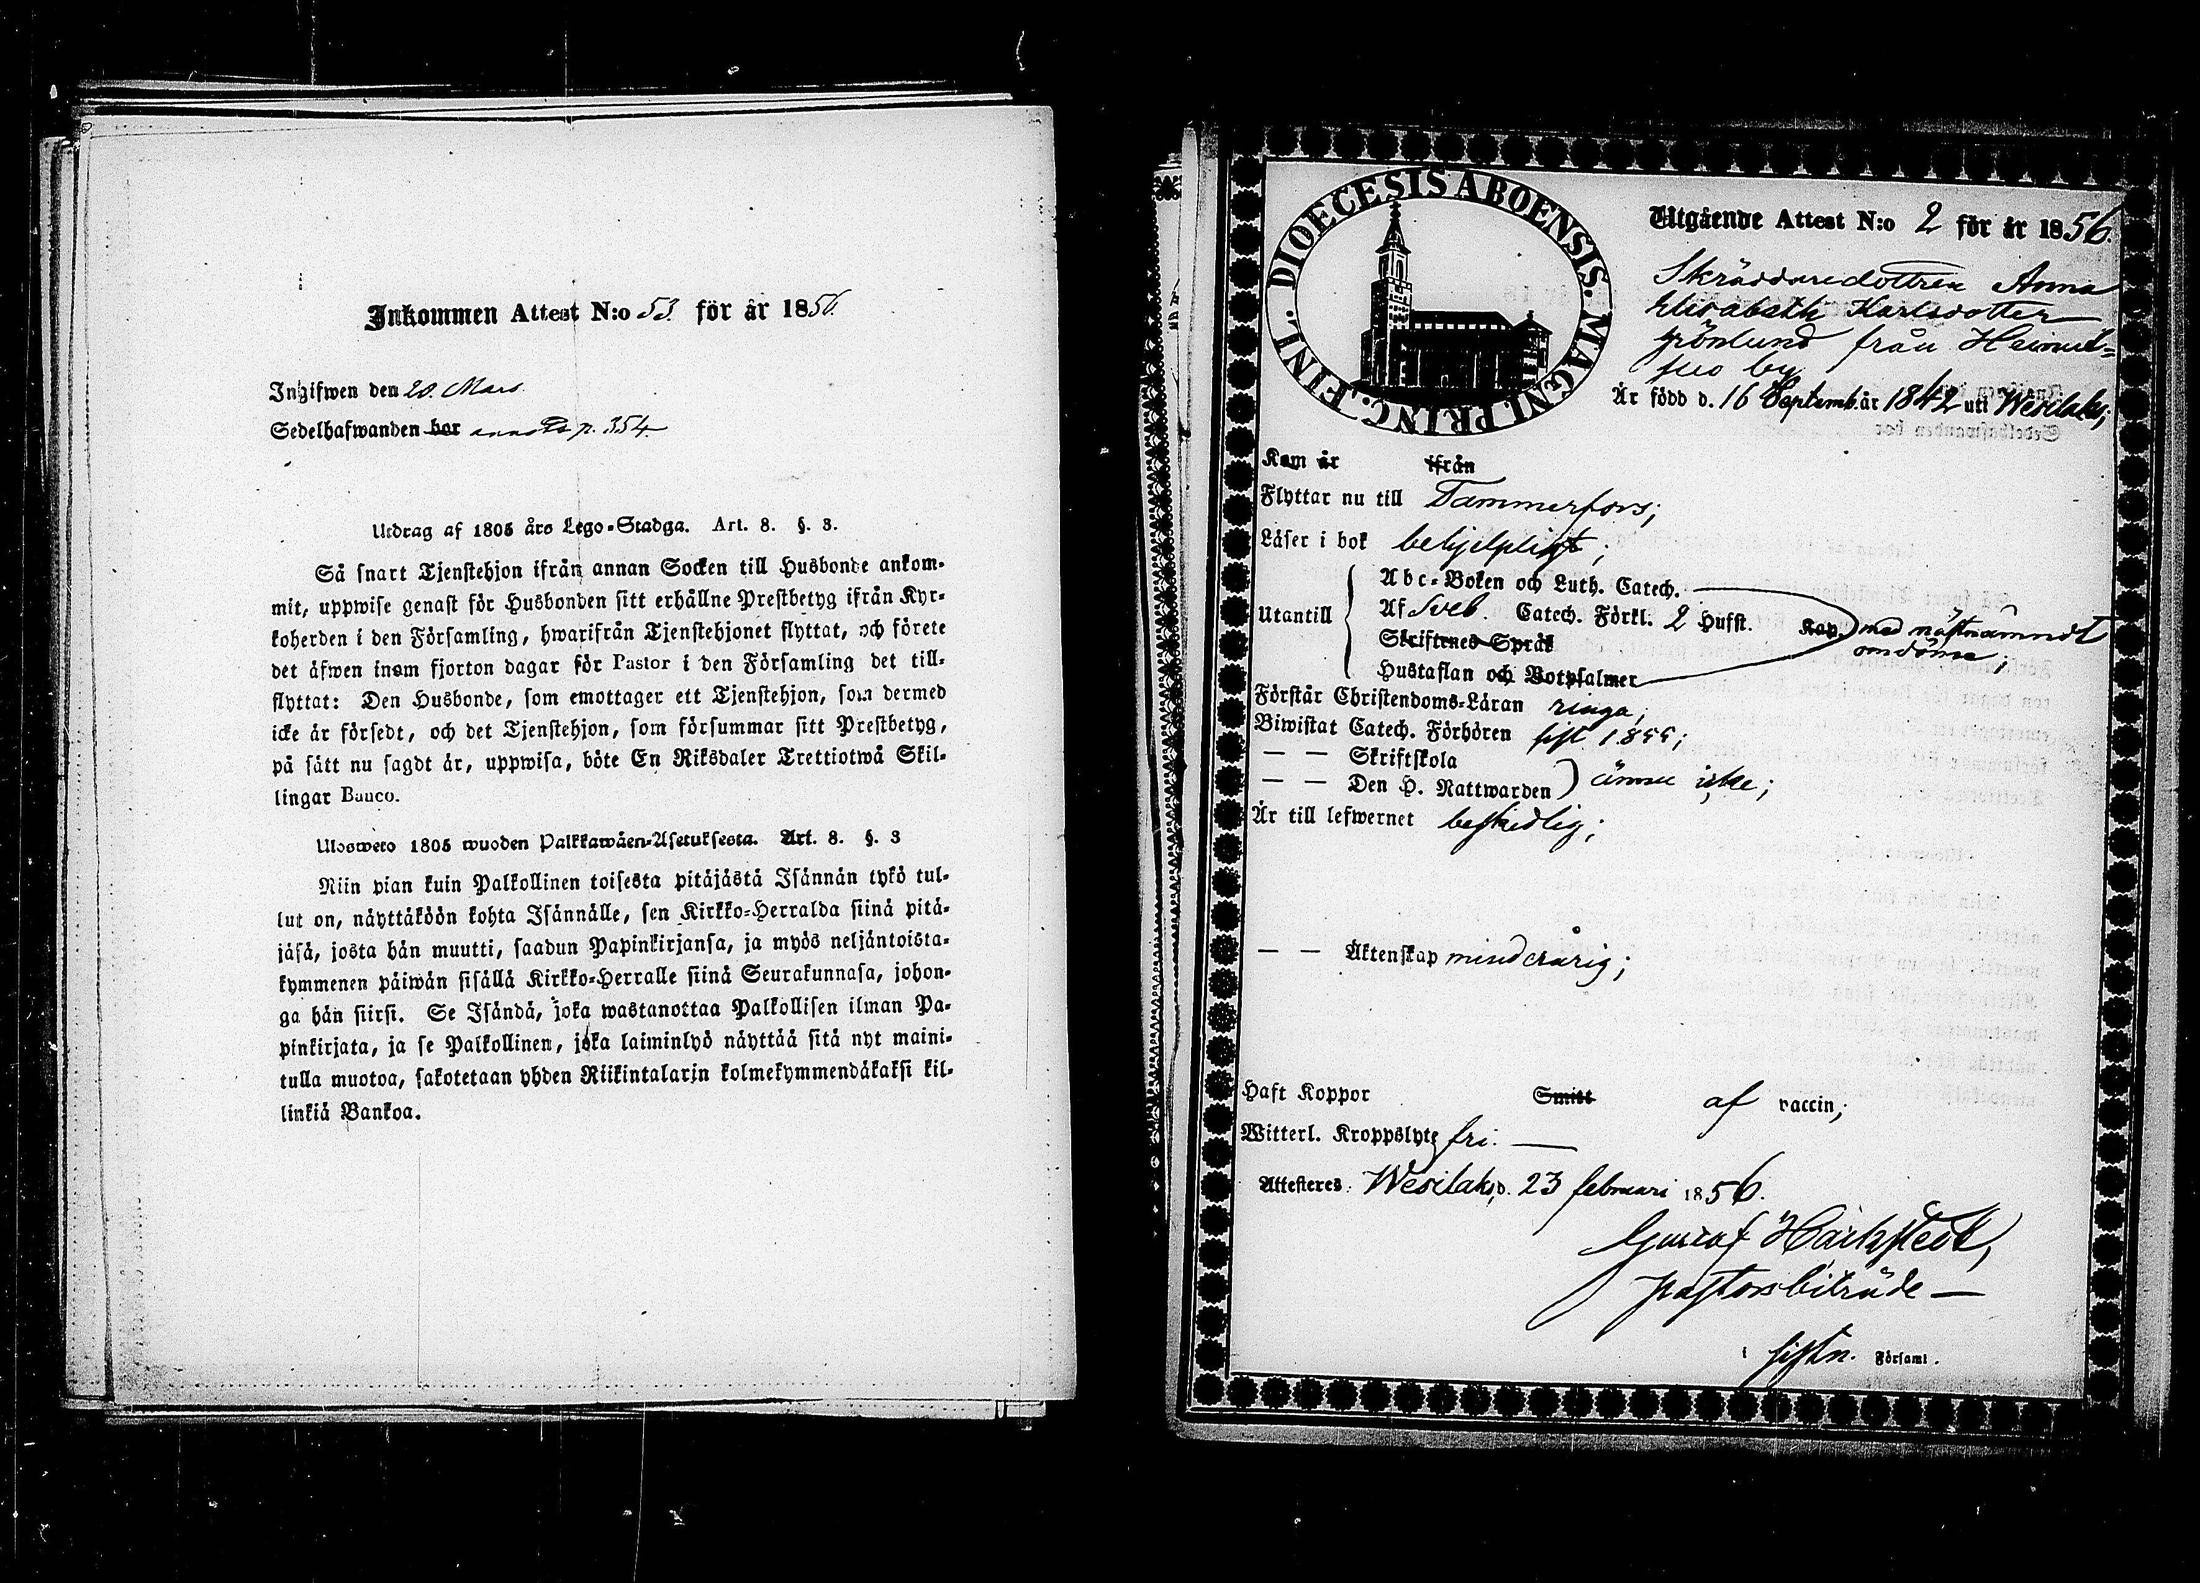 Inkommen Attest N:o 53. för år 1856.
Ingifwen den 20. Mars.
Sedelhafwanden bor annot. p. 354.
Utdrag af 1805 års Lego-Stadga. Art. 8. §. 3.
Så snart Tjenstehjon ifrån annan Socken till Husbonde ankom-
mit, uppwise genast för Husbonden sitt erhållne Prestbetyg ifrån Kyr-
koherden i den Församling, hwarifrån Tjenstehjonet flyttat, och förete
det äfwen inom fjorton dagar för Pastor i den Församling det till-
flyttat: Den Husbonde, som emottager ett Tjenstehjon, som dermed
icke är försedt, och det Tjenstehjon, som försummar sitt Prestbetyg,
på sätt nu sagdt är, uppwisa, böte En Riksdaler Trettiotwå Skil-
lingar Banco.
Ulosweto 1805 wuoden Palkkawäen-Asetuksesta. Art. 8. §. 3
Niin pian kuin Palkollinen toisesta pitäjästä Isännän tykö tul-
lut on, näyttäköön kohta Isännälle, sen Kirkko-Herralda siinä pitä-
jäsä, josta hän muutti, saadun Papinkirjansa, ja myös neljäntoista-
kymmenen päiwän sisällä Kirkko-Herralle siinä Seurakunnasa, johon-
ga hän siirsi. Se Isändä, joka wastanottaa Palkollisen ilman Pa-
pinkirjata, ja se Palkollinen, joka laiminlyö näyttää sitä nyt maini-
tulla muotoa, sakotetaan yhden Riikintalarin kolmekymmendäkaksi kil-
linkiä Bankoa.
DIOECESIS ABOENSIS. MAGNI. PRINC. FINL.
Utgående Attest N:o 2 för år 1856.
Skräddaredottren Anna
Elisabeth Karlsdotter
Grönlund från Heinut=
suo by
Är född d. 16 Septemb. år 1842 uti Wesilaks;
Kom år ifrån
Flyttar nu till Tammerfors;
Läser i bok behjelpligt;
Abc-Boken och Luth. Catech.
Utantill Af Sveb. Catech. Förkl. 2 Hufst. Kap. med nästnämndt
omdöme;
Skriftenes Språk
Hustaflan och Botpsalmer
Förstår Christendoms-Läran ringa;
Biwistat Catech. Förhören sist 1855;
— — Skriftskola
— — Den H. Nattwarden ännu icke;
Är till lefwernet beskedlig;
— — Äktenskap minderårig;
Haft Koppor Smitt af vaccin;
Witterl. Kroppslyte fri. —
Attesteres Wesilaks, d. 23 februari 1856.
Gustaf Härkstedt,
pastorsbiträde —
i sistn. Församl.